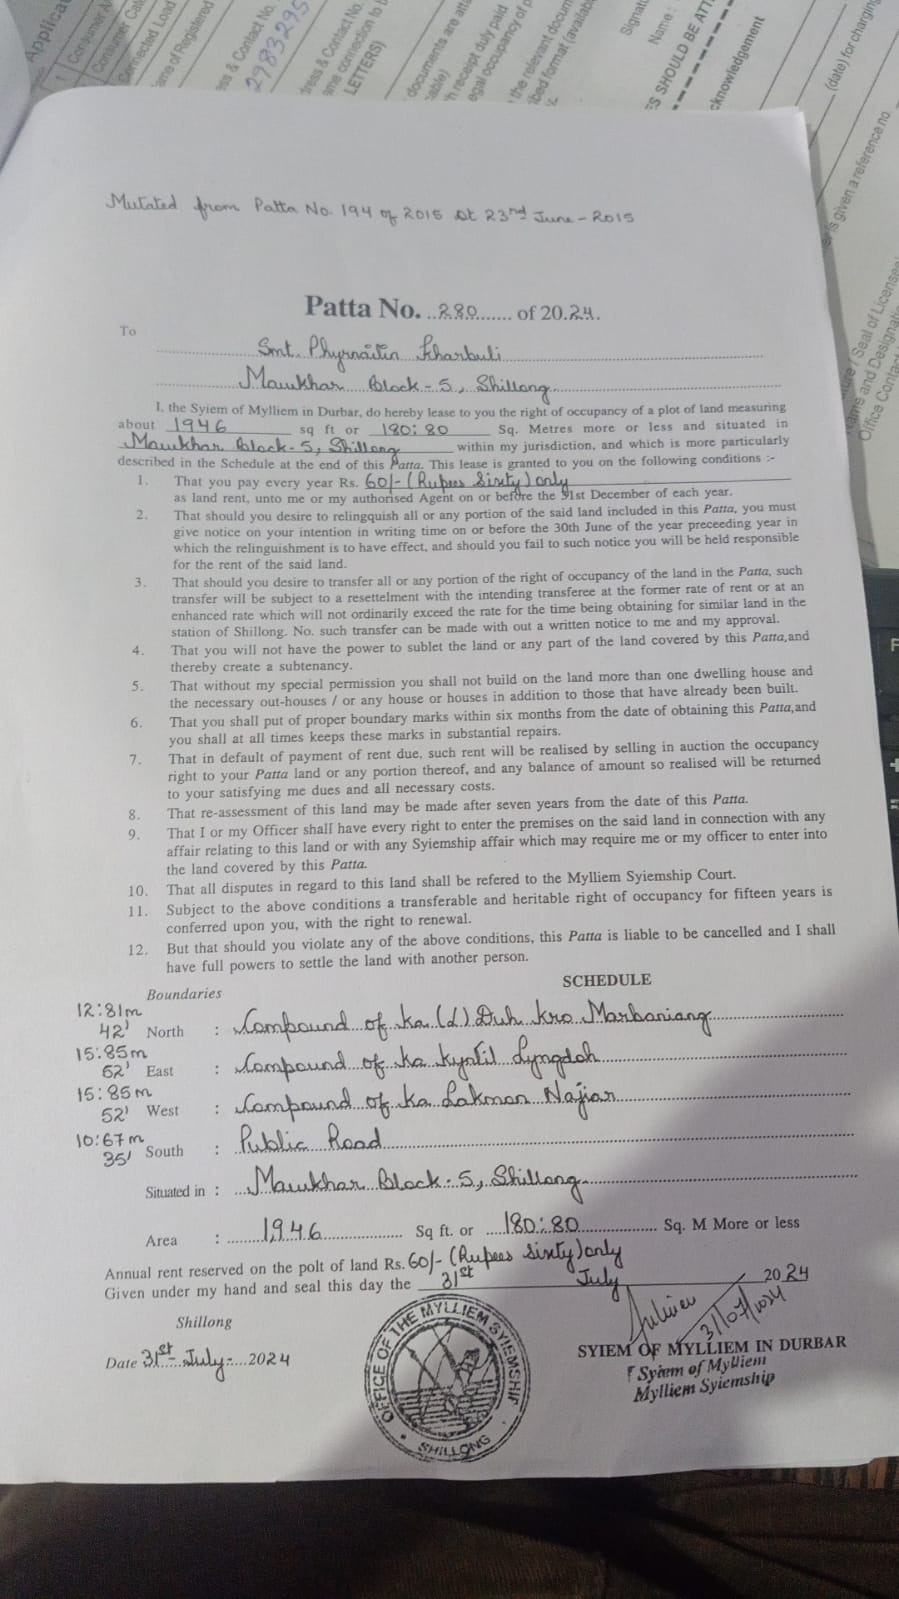 Applicat
1 Consumer
Consumer Cat
Connected Load
ame of Registered
ess & Contact No.
2983295
dress & Contact No.
ame connection to b
LETTERS)
documents are atta
cable)
h receipt duly paid
egal occupancy of p
the relevant docum
ibed format (availab
Signat
Name :
ES SHOULD BE ATT
cknowledgement
(date) for charging
is given a reference no.
ture / Seal of Licensee
Name and Designati
Office Contact
Mutated from Patta No. 194 of 2015 Dt 23rd June - 2015
Patta No. ..280....... of 2024.
To
Smt. Phyrnailin Kharbuli
Mawkhar Block - 5, Shillong
I, the Syiem of Mylliem in Durbar, do hereby lease to you the right of occupancy of a plot of land measuring
about 1946 sq ft or 180:80 Sq. Metres more or less and situated in
Mawkhar Block - 5, Shillong within my jurisdiction, and which is more particularly
described in the Schedule at the end of this Patta. This lease is granted to you on the following conditions :-
1. That you pay every year Rs. 60/- (Rupees Sixty) only
as land rent, unto me or my authorised Agent on or before the 31st December of each year.
2. That should you desire to relingquish all or any portion of the said land included in this Patta, you must
give notice on your intention in writing time on or before the 30th June of the year preceeding year in
which the relinguishment is to have effect, and should you fail to such notice you will be held responsible
for the rent of the said land.
3. That should you desire to transfer all or any portion of the right of occupancy of the land in the Patta, such
transfer will be subject to a resettelment with the intending transferee at the former rate of rent or at an
enhanced rate which will not ordinarily exceed the rate for the time being obtaining for similar land in the
station of Shillong. No. such transfer can be made with out a written notice to me and my approval.
4. That you will not have the power to sublet the land or any part of the land covered by this Patta,and
thereby create a subtenancy.
5. That without my special permission you shall not build on the land more than one dwelling house and
the necessary out-houses / or any house or houses in addition to those that have already been built.
6. That you shall put of proper boundary marks within six months from the date of obtaining this Patta,and
you shall at all times keeps these marks in substantial repairs.
7. That in default of payment of rent due, such rent will be realised by selling in auction the occupancy
right to your Patta land or any portion thereof, and any balance of amount so realised will be returned
to your satisfying me dues and all necessary costs.
8. That re-assessment of this land may be made after seven years from the date of this Patta.
9. That I or my Officer shall have every right to enter the premises on the said land in connection with any
affair relating to this land or with any Syiemship affair which may require me or my officer to enter into
the land covered by this Patta.
10. That all disputes in regard to this land shall be refered to the Mylliem Syiemship Court.
11. Subject to the above conditions a transferable and heritable right of occupancy for fifteen years is
conferred upon you, with the right to renewal.
12. But that should you violate any of the above conditions, this Patta is liable to be cancelled and I shall
have full powers to settle the land with another person.
SCHEDULE
Boundaries
12:81m
42' North : Compound of Ka (L) Duh Kro Marbaniang
15:85m
52' East : Compound of Ka Kyntil Lyngdoh
15:85m
52' West : Compound of Ka Lakmon Najiar
10:67m
35' South : Public Road
Situated in : Mawkhar Block - 5, Shillong
Area : 1,946 Sq ft. or 180:80 Sq. M More or less
Annual rent reserved on the polt of land Rs. 60/- (Rupees Sixty) only
Given under my hand and seal this day the 31st July 2024
Shillong
31/07/2024
Date 31st July - 2024
SYIEM OF MYLLIEM IN DURBAR
Syiem of Mylliem
Mylliem Syiemship
OFFICE OF THE MYLLIEM SYIEMSHIP
SHILLONG